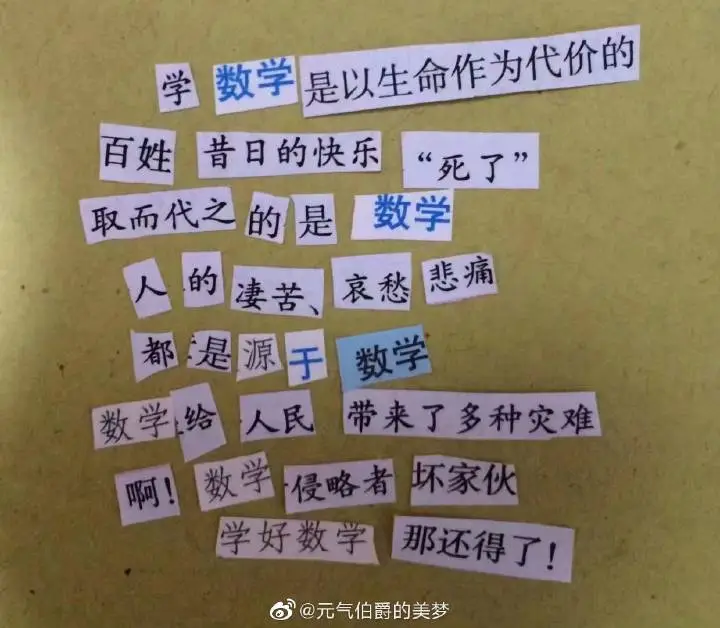 学 数学 是以生命作为代价的
百姓 昔日的快乐 “死了”
取而代之 的 是 数学
人 的 凄苦、 哀愁 悲痛
都 是 源 于 数学
数学 给 人民 带来了多种灾难
啊！ 数学 侵略者 坏家伙
学好数学 那还得了！
@元气伯爵的美梦